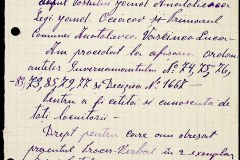 șeful Postului Jand. Anatolievca
Legi. Jand. Cecacov și Primarul
Comunei Anatolievca Vasciuca Luca
Am procedat la afișarea Ordon-
anțelor Guvernamantului No 74, 75, 76,
83, 73, 85, 79, 77 și Decizia No 1667
Pentru a fi citită și cunoscută de
toți locuitorii
Drept pentru care am dresat
prezentul proces-Verbal în 2 exemplar